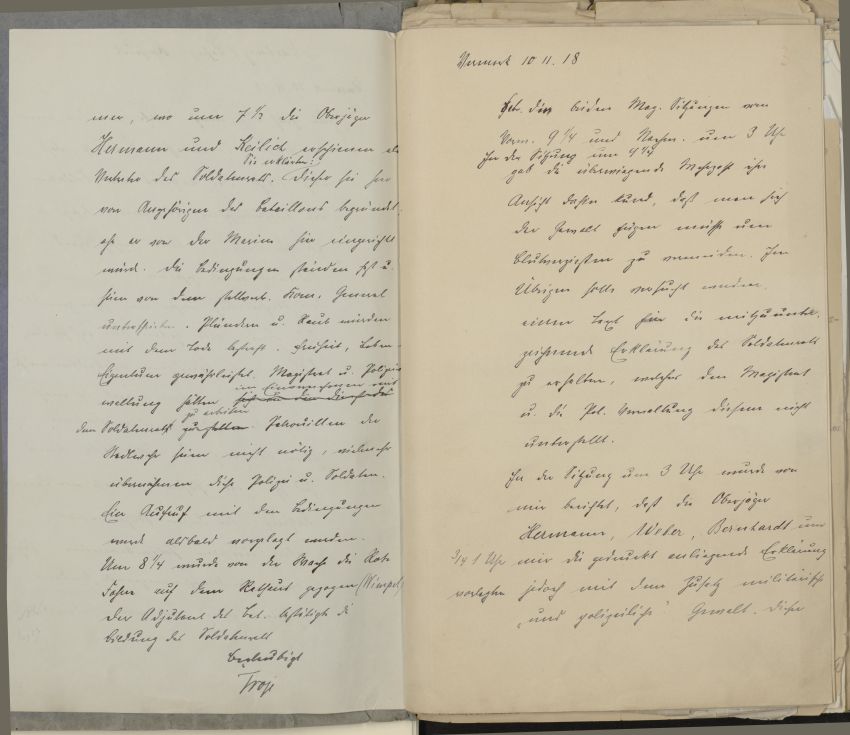 men, wo um 7 1/2 die Oberjäger
Hermann und Keilich erschienen als
Sie erklärten:
Vertreter des Soldatenrats. Dieser sei hier
von Angehörigen des Bataillons begründet,
ehe er von der Marine hier eingerichtet
würde. Die Bedingungen ständen fest u.
seien von dem stellvert. Kom. General
unterschrieben. Plündern u. Raub würden
mit dem Tode bestraft. Freiheit, Leben
Eigentum gewährleistet. Magistrat u. Polizei
im Einvernehmen mit
waltung hätten sich in den Dienst
dem Soldatenrat zu arbeiten zu stellen. Patrouillen der
seien nicht nötig, vielmehr
übernehmen diese Polizei u. Soldaten.
Ein Aufruf mit den Bedingungen
werde alsbald vorgelegt werden.
Um 8 1/4 wurde von der Wache die Rote
Fahne auf dem Rathaus gezogen (Wimpel)
Der Adjutant des Bat. bestätigte die
Bildung des Soldatenrats
Beglaubigt
Troje
Vermerk 10 11. 18
In den beiden Mag. Sitzungen von
Vorm. 9 1/4 und Nachm. um 3 Uhr
In der Sitzung um 9 1/4
gab die überwiegende Mehrzahl ihre
Ansicht dahin kund, daß man sich
der Gewalt fügen müsse um
Blutvergießen zu vermeiden. Im
Übrigen solle versucht werden,
einen Text für die mitzuunter-
zeichnende Erklärung des Soldatenrats
zu erhalten, welcher den Magistrat
u. die Pol. Verwaltung diesem nicht
unterstellt.
In der Sitzung um 3 Uhr wurde von
mir berichtet, daß die Oberjäger
Hermann, Weber, Bernhardt um
3/4 1 Uhr mir die gedruckt anliegende Erklärung
vorlegten jedoch mit dem Zusatz militärische
„und polizeiliche" Gewalt. Diese